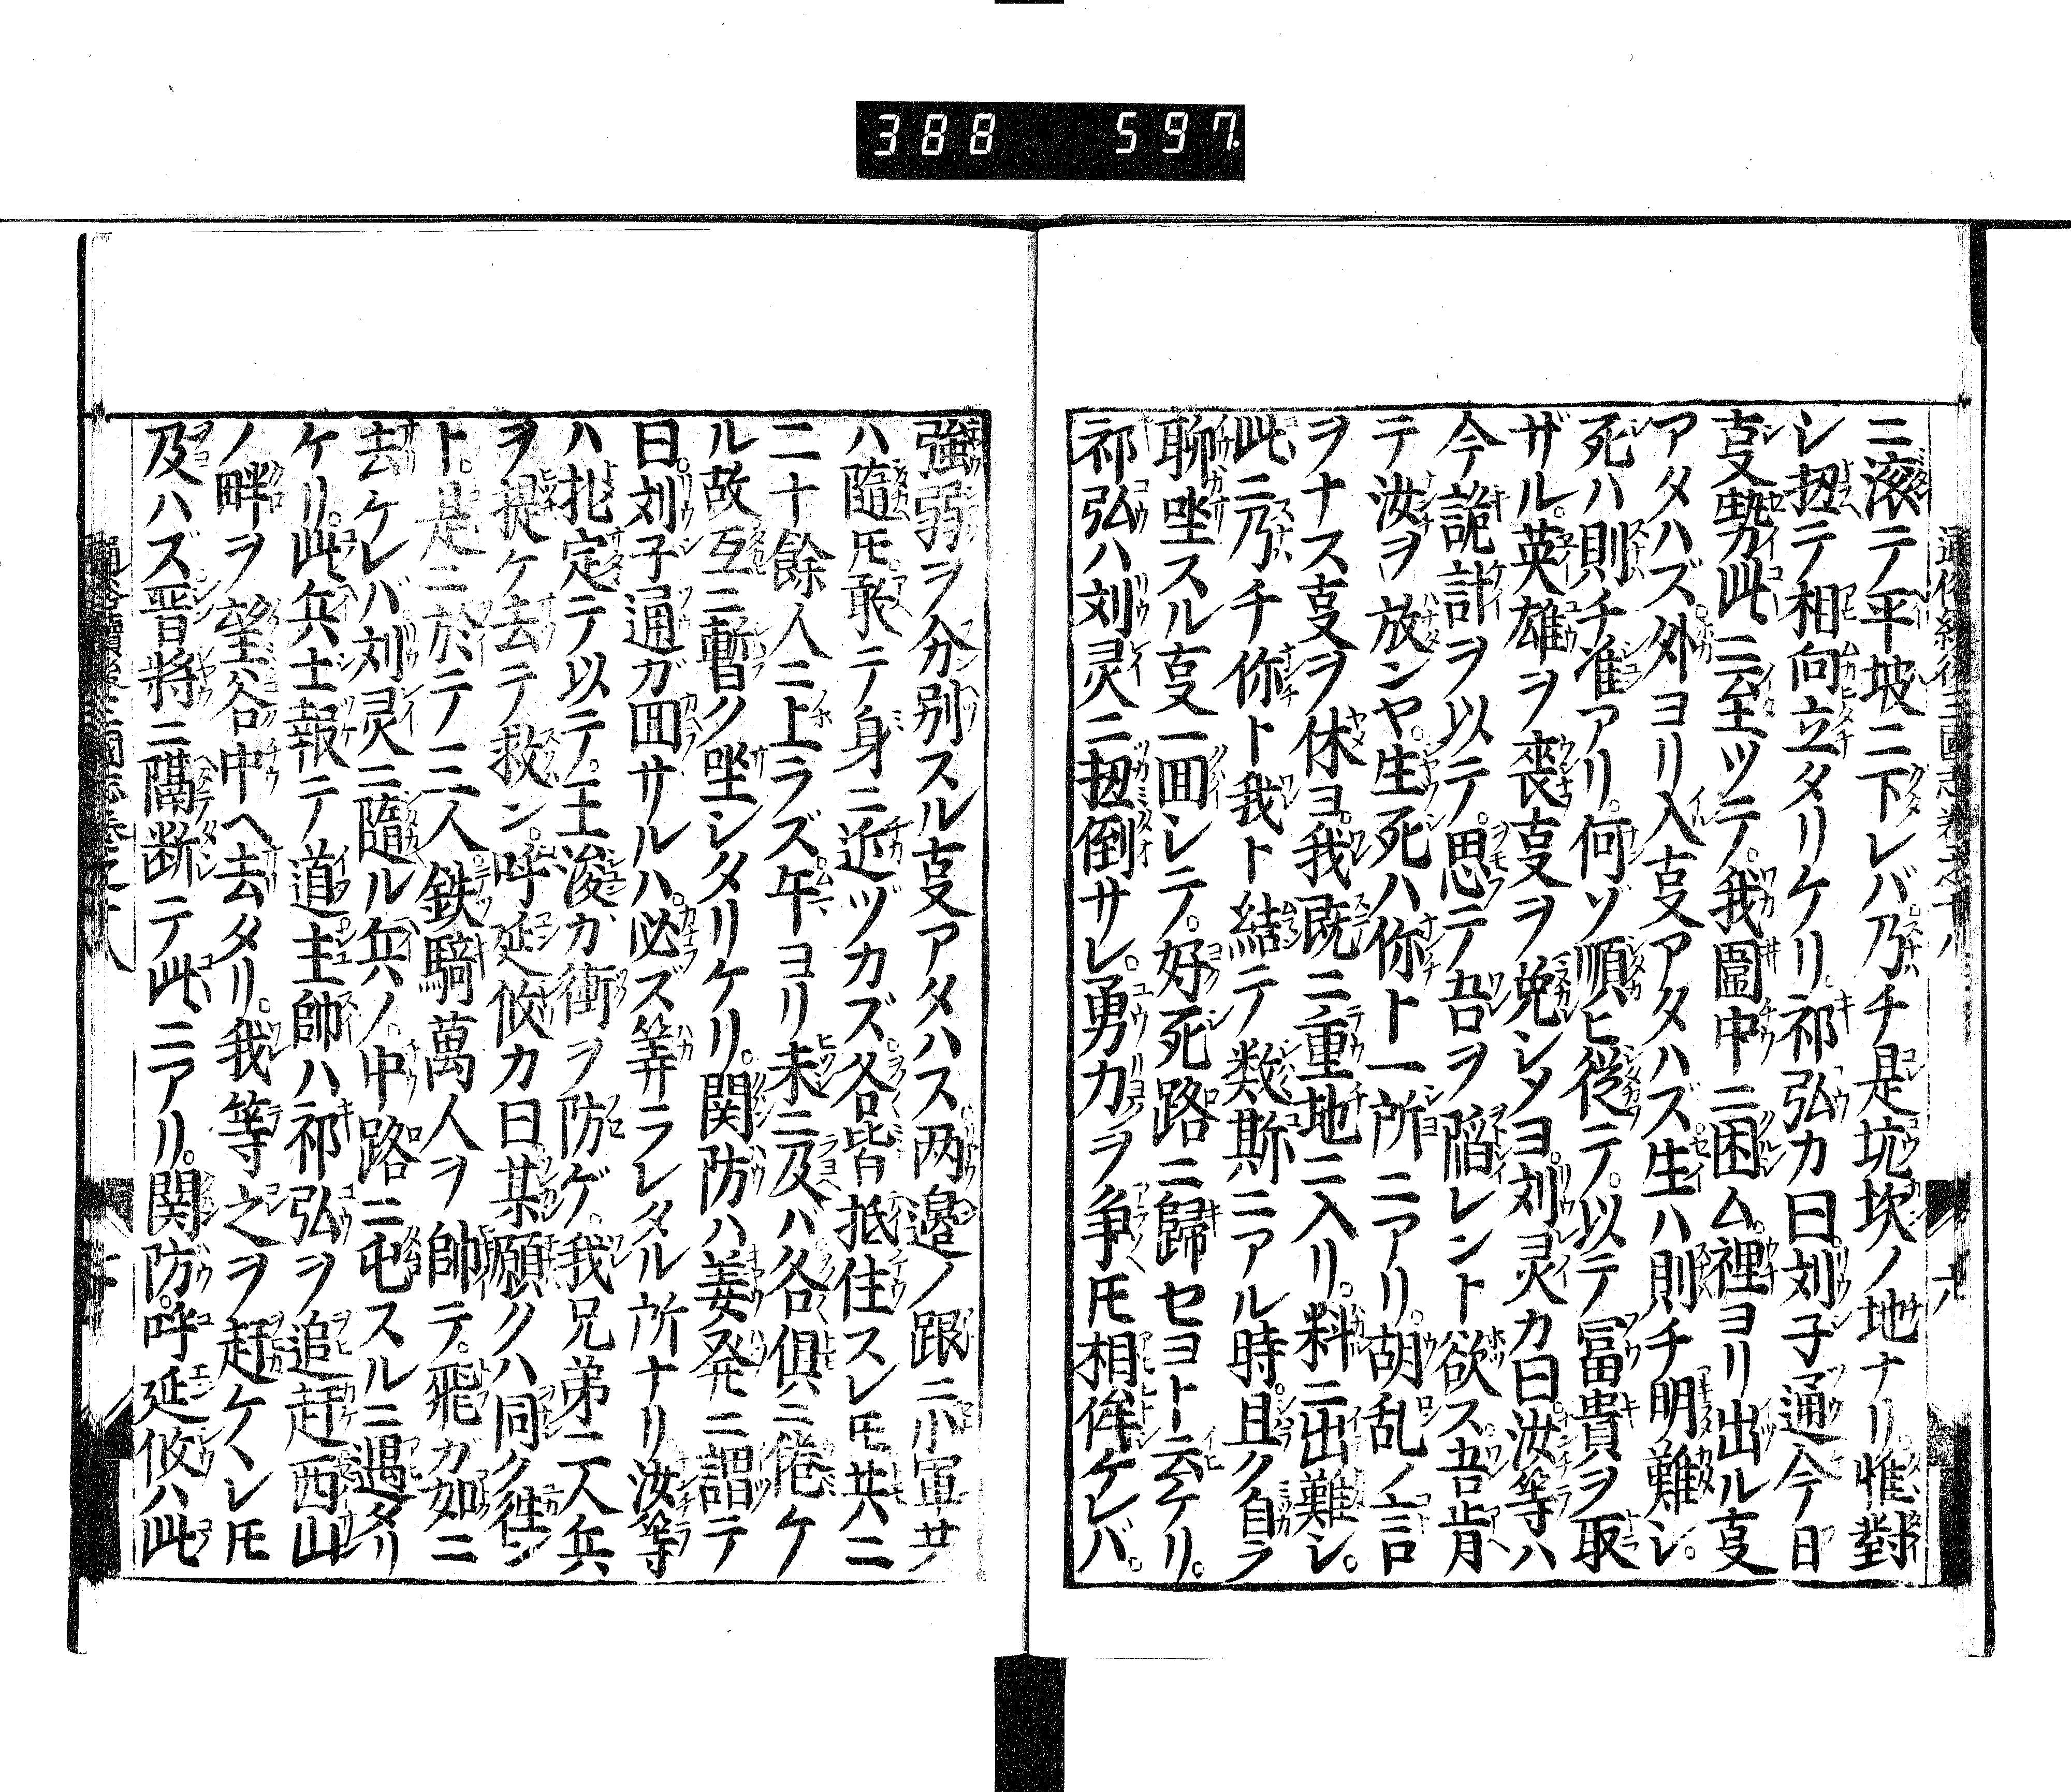 388 597
通俗續後三國志卷之十八 六
ニ滾テ平坡ニ下レバ乃チ是坑坎ノ地ナリ惟對
シ扭テ相向立タリケリ。祁弘カ曰刘子通今日
叓勢此ニ至ツテ。我圍中ニ困ム。裡ヨリ出ル叓
アタハズ。外ヨリ入叓アタハズ生ハ則チ明難シ。
死ハ則チ准アリ。何ゾ順ヒ從テ。以テ冨貴ヲ取
ザル。英雄ヲ喪叓ヲ免シメヨ。刘灵カ曰汝等ハ
今詭計ヲ以テ。思テ吾ヲ陷レント欲ス吾肯
テ汝ヲ放ンヤ。生死ハ你ト一所ニアリ。胡乱ノ言
ヲナス叓ヲ休ヨ。我既ニ重地ニ入リ。料ニ出難シ。
此ニ乃チ你ト我ト結テ数斯ニアル時。且ク自ラ
聊坐スル叓一囬シテ。好死路ニ歸セヨト云ケリ。
祁弘ハ刘灵ニ扭倒サレ。勇力ヲ争㪽相侔ケレバ。
強弱ヲ分別スル叓アタハス两邉ノ跟ニ小軍サ
ハ隨𪜈敢テ身ニ近ヅカズ。各皆抵住スレ𪜈共ニ
二十餘人ニ上ラズ午ヨリ未ニ及ハ各俱ニ倦ケ
ル故互ニ暫ク坐シタリケリ。関防ハ姜発ニ謂テ
曰。刘子通ガ囬サルハ。必ズ筭ラレタル所ナリ汝等
ハ扎定テ以テ。王浚カ衝ヲ防ゲ。我兄弟二人兵
ヲ提ケ去テ救ン。呼延攸カ曰某願クハ同ク徃ン
ト。是ニ於テ三人鉄騎萬人ヲ帥テ。飛カ如ニ
去ケレバ刘灵ニ隨ル兵ノ。中路ニ屯スルニ遇タリ
ケリ。此兵士報テ道主帥ハ祁弘ヲ追赶西山
ノ畔ヲ望谷中ヘ去タリ。我等之ヲ赶ケヽレ𪜈
及ハズ晋將ニ隔断テ此ニアリ。関防。呼延攸ハ此